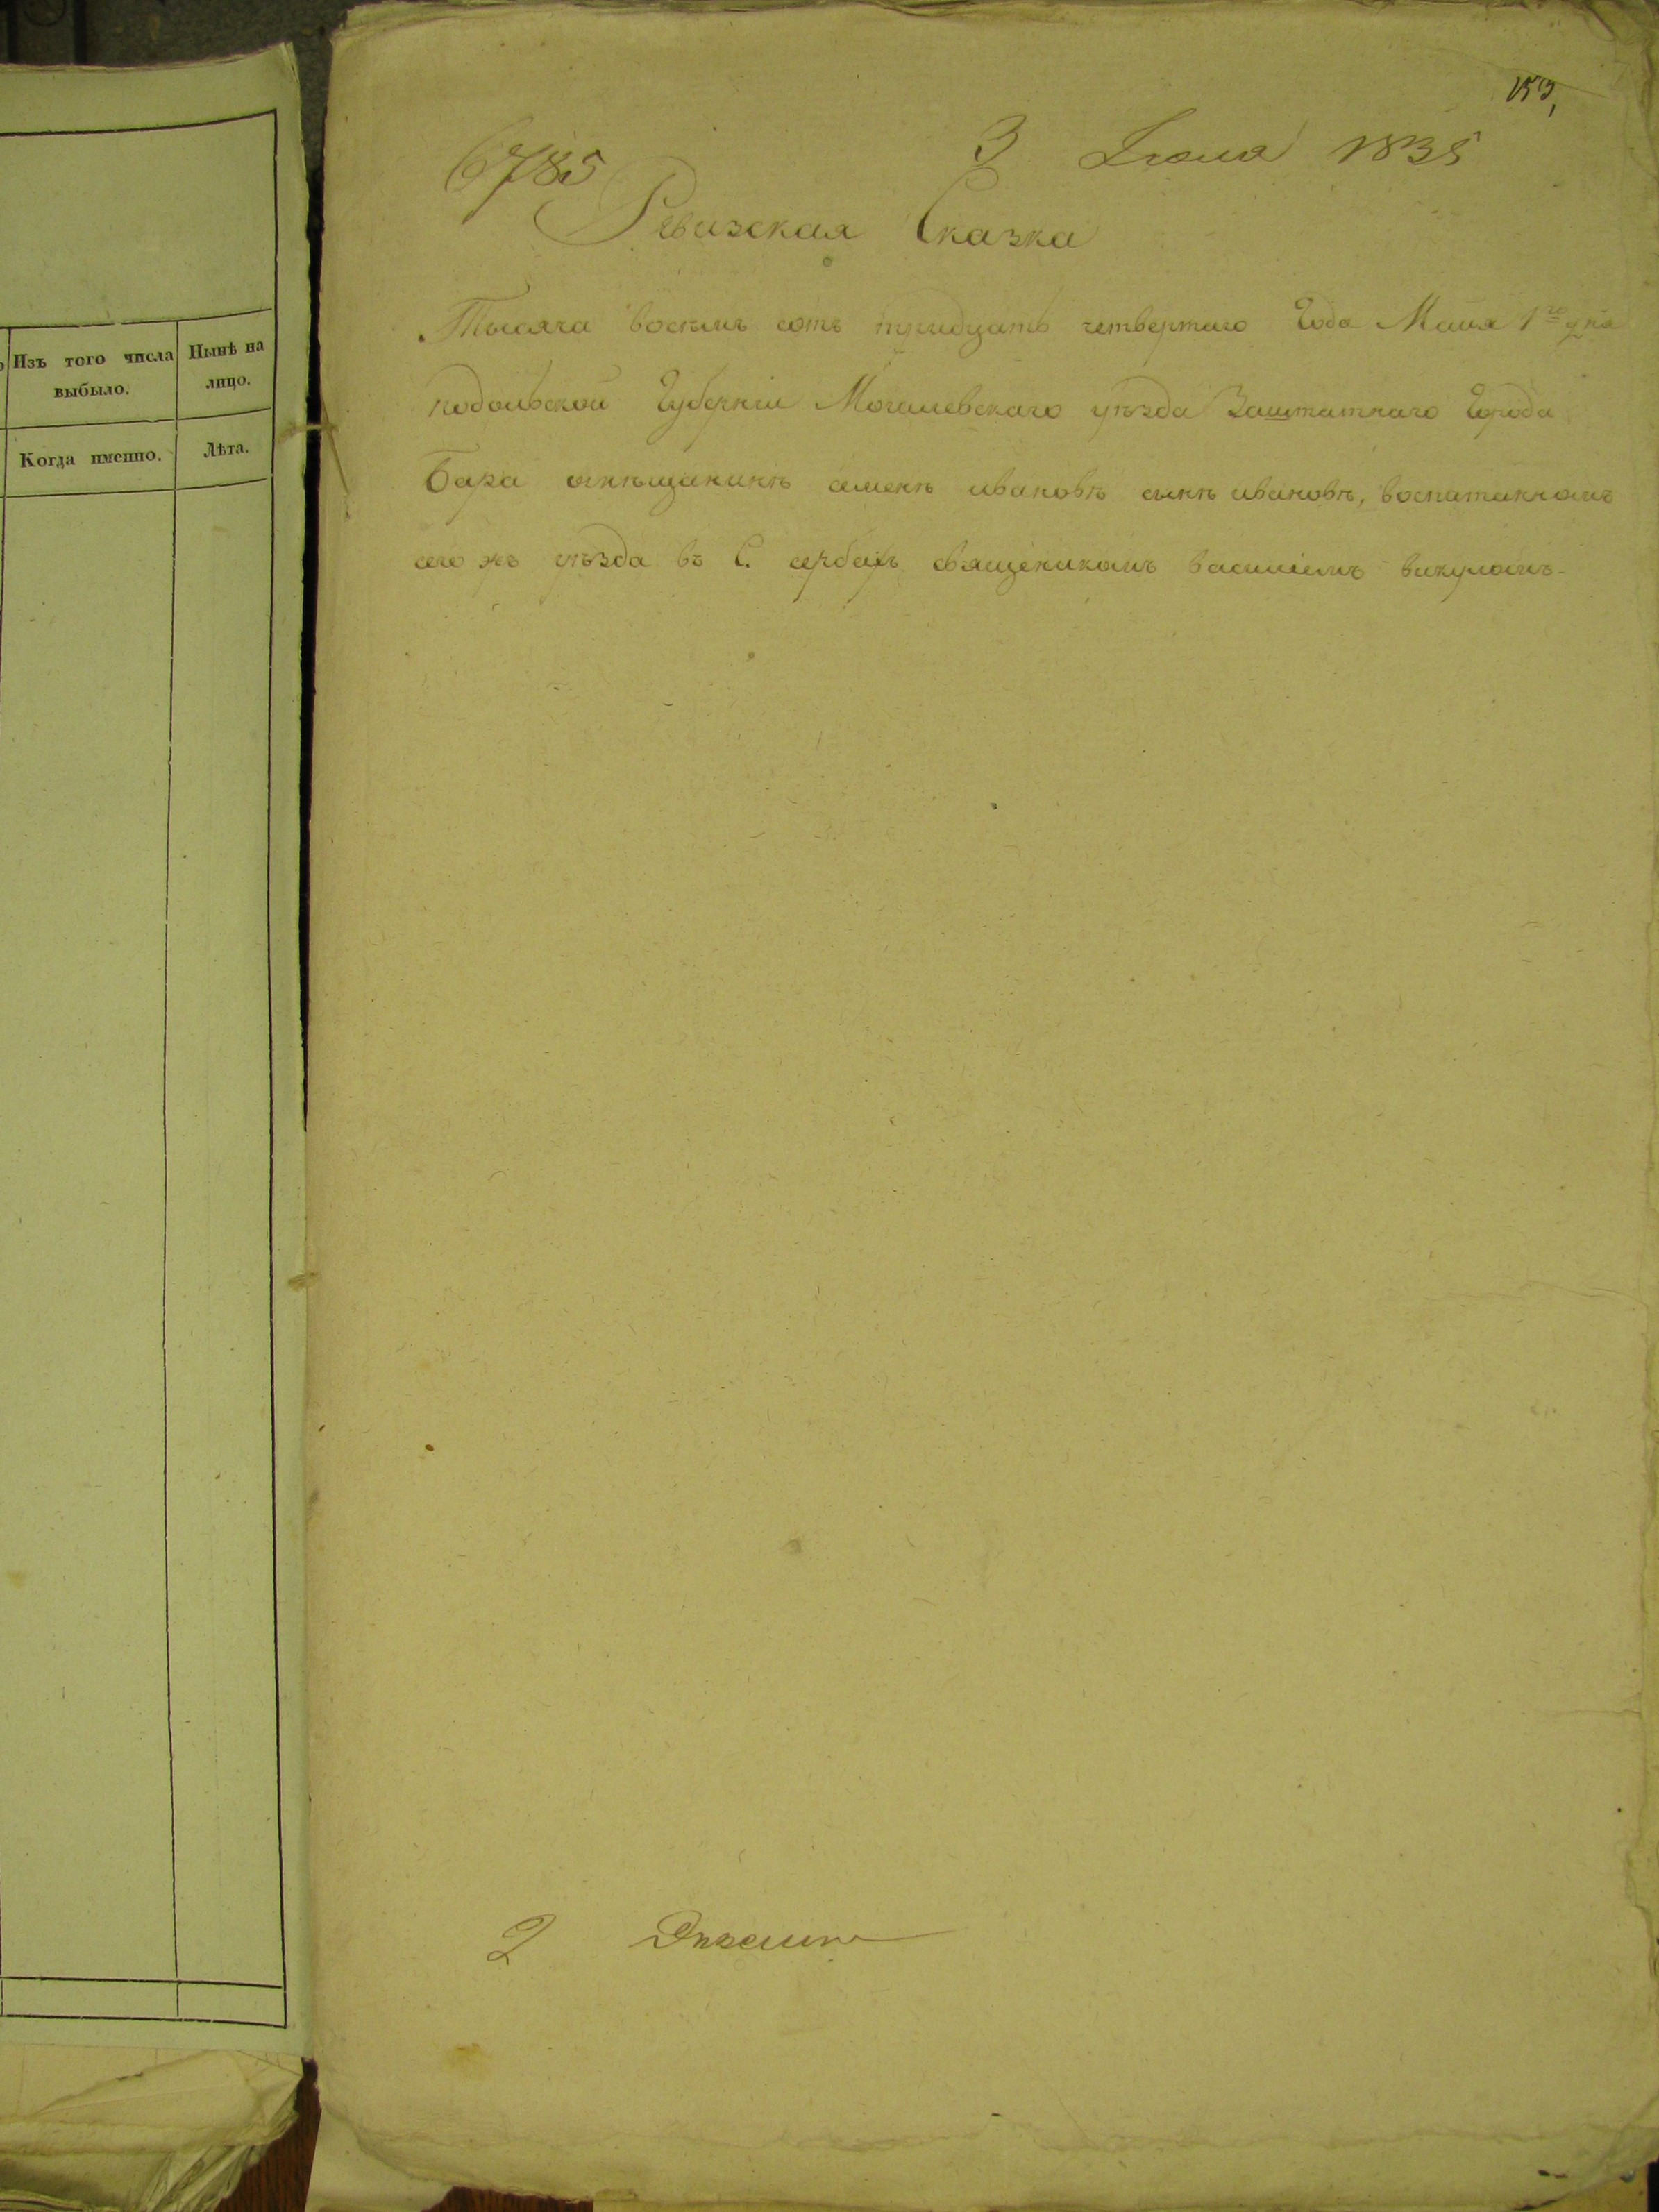 Изъ того числа
выбыло.
Нынѣ на
лицо.
Когда именно.
Лѣта.
153
6785 3 Іюля 1835
Ревизская Сказка
Тысяча восемь сотъ тридцать четвертаго Года Маия 1го дня
подольской Губерніи Могилевскаго уѣзда Заштатнаго Города
Бара омѣщанинъ семенъ ивановъ сынъ ивановъ, воспитанномъ
сего жъ уѣзда въ С. сербахъ священикомъ василіемъ викуломъ
2